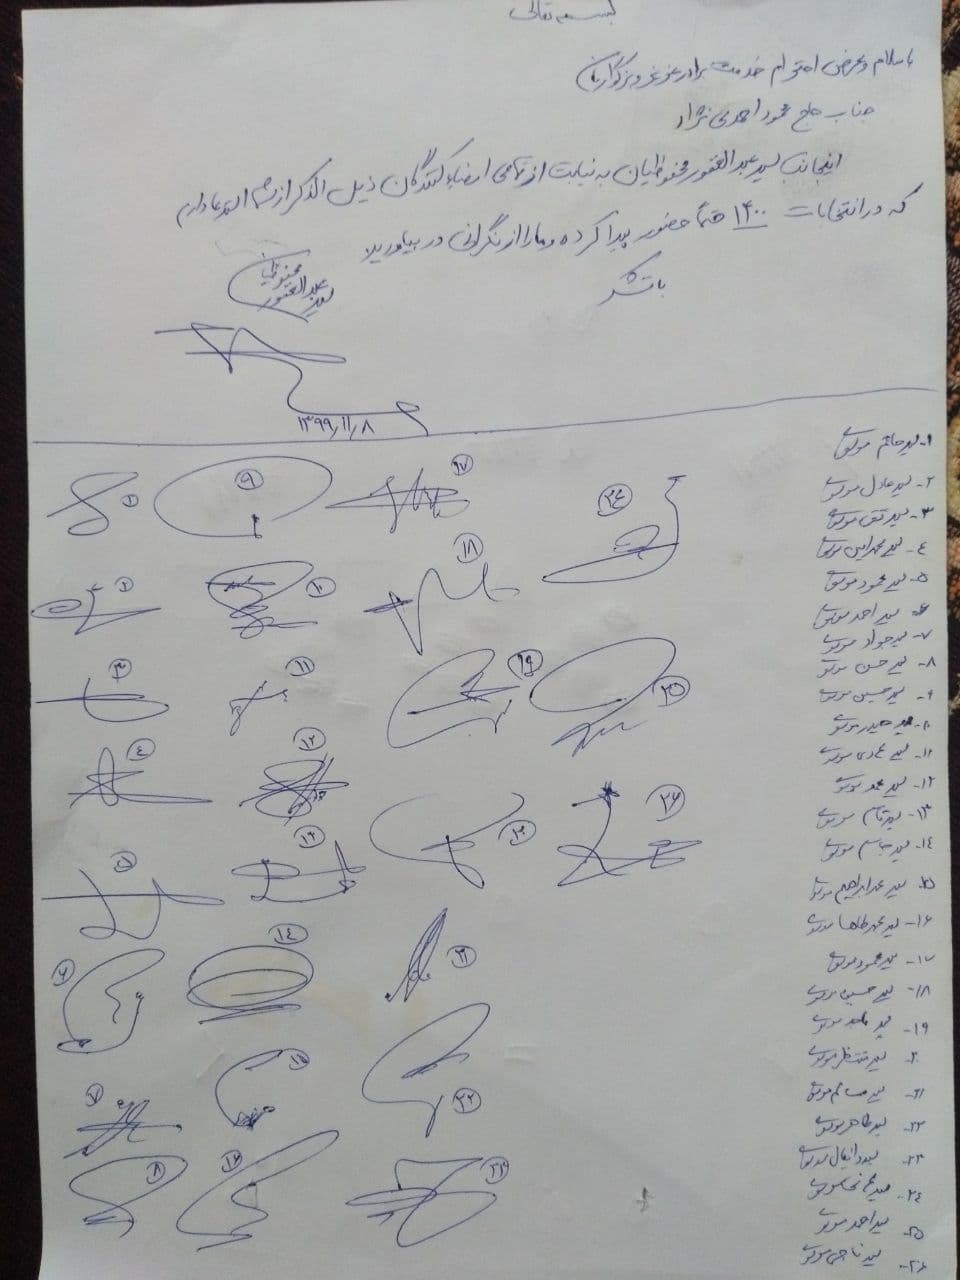 بسمه تعالی
با سلام و عرض احترام خدمت برادر عزیز و بزرگوارمان
جناب حاج محمود احمدی نژاد
اینجانب سید عبدالغفور محفوظیان به نیابت از تمامی امضاء کنندگان ذیل الذکر از شما استدعا دارم
که در انتخابات ۱۴۰۰ حتماً حضور پیدا کرده و ما را از نگرانی در بیاورید
با تشکر
سید عبدالغفور
محفوظیان
۱۳۹۹/۱۱/۸
۱- سید حاتم موسوی
۲- سید عادل موسوی
۳- سید تقی موسوی
٤- سید محمد امین موسوی
۵- سید محمود موسوی
۶- سید احمد موسوی
۷- سید جواد موسوی
۸- سید حسن موسوی
۹- سید حسین موسوی
۱۰- سید حیدر موسوی
۱۱- سید هادی موسوی
۱۲- سید محمد موسوی
۱۳- سید قاسم موسوی
۱٤- سید جاسم موسوی
۱۵- سید ابراهیم موسوی
۱۶- سید محمد طاها موسوی
۱۷- سید محمود موسوی
۱۸- سید حسین موسوی
۱۹- سید ماجد موسوی
۲۰- سید منتظر موسوی
۲۱- سید مسلم موسوی
۲۲- سید طاهر موسوی
۲۳- سید دانیال موسوی
۲٤- سید موسوی
۲۵- سید احمد موسوی
۲۶- سید ناجی موسوی
۱
۹
۱۷
۲٤
۲
۱۰
۱۸
۳
۱۱
۱۹
۲۵
٤
۱۲
۲۰
۲۶
۵
۱۳
۶
۱٤
۲۱
۷
۱۵
۲۲
۸
۱۶
۲۳